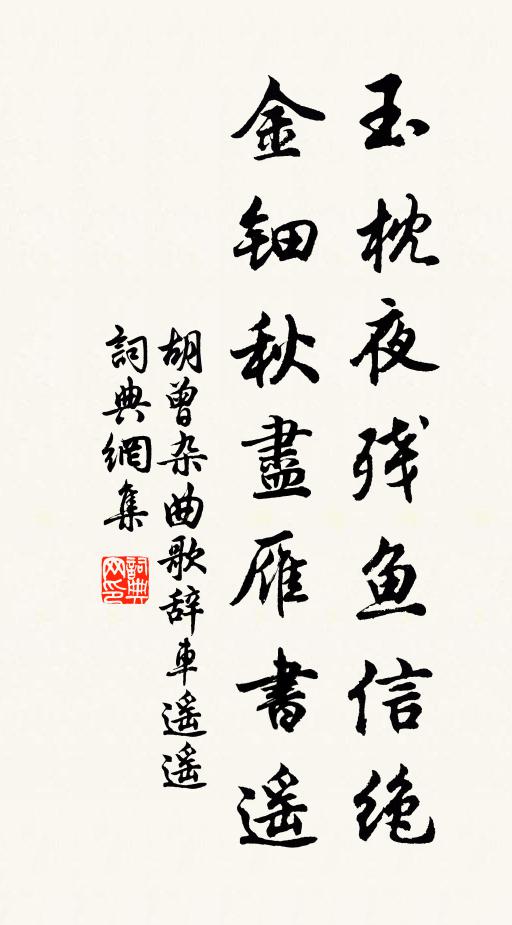 玉枕夜残鱼信绝
金钿秋盡雁書遥
胡曾杂曲歌辞車遥遥
詞典網集
詞典网印